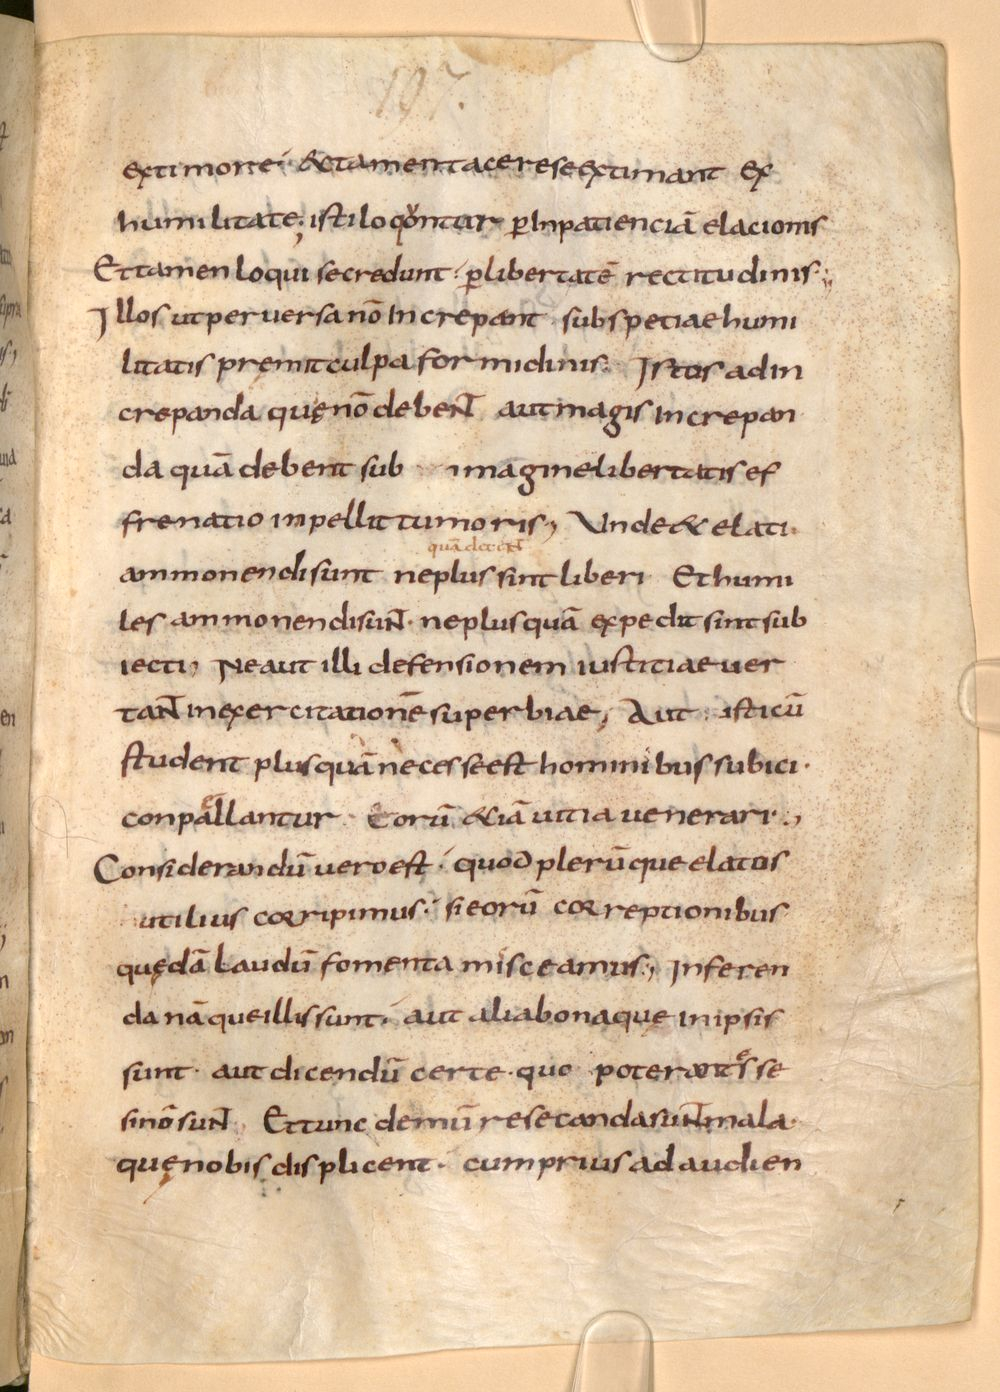 197.
extimore· &tamentacereseextimant ex
humilitate; isti loqontur p̱ Inpatienciā elacionis
Et tamen loqui se credunt· p̱ libertatē rectitudinis·;
Illos ut perversa nō Increpant subspetiae humi
litatis premit culpa formidinis· Istos ad in
crepanda quę nō debent aut magis Increpan
da quā debent sub imagine libertatis ef
frenatio inpellit tumoris, Unde & elati
quā decent
ammonendi sunt ne plus sint liberi Et humi
les ammonendi sunt· ne plus quā expedit sint sub
iecti, Ne aut illi defensionem iustitiae ver
tant in exercitationē superbiae, Aut isti cū
student plus quā necesse est hominibus subici·
conpellantur Eorū &iā vitia venerari·,
Considerandū vero est· quod plerūque elatos
utilius corripimus· si eorū correptionibus
quędā Laudū fomenta misceamus·, Inferen
da nāque illis sunt· aut alia bona quę in ipsis
sunt· aut dicendū certe· quo poterant esse
si nō sunt Et tunc demū resecanda sunt mala·
quę nobis displicent· cum prius ad audien